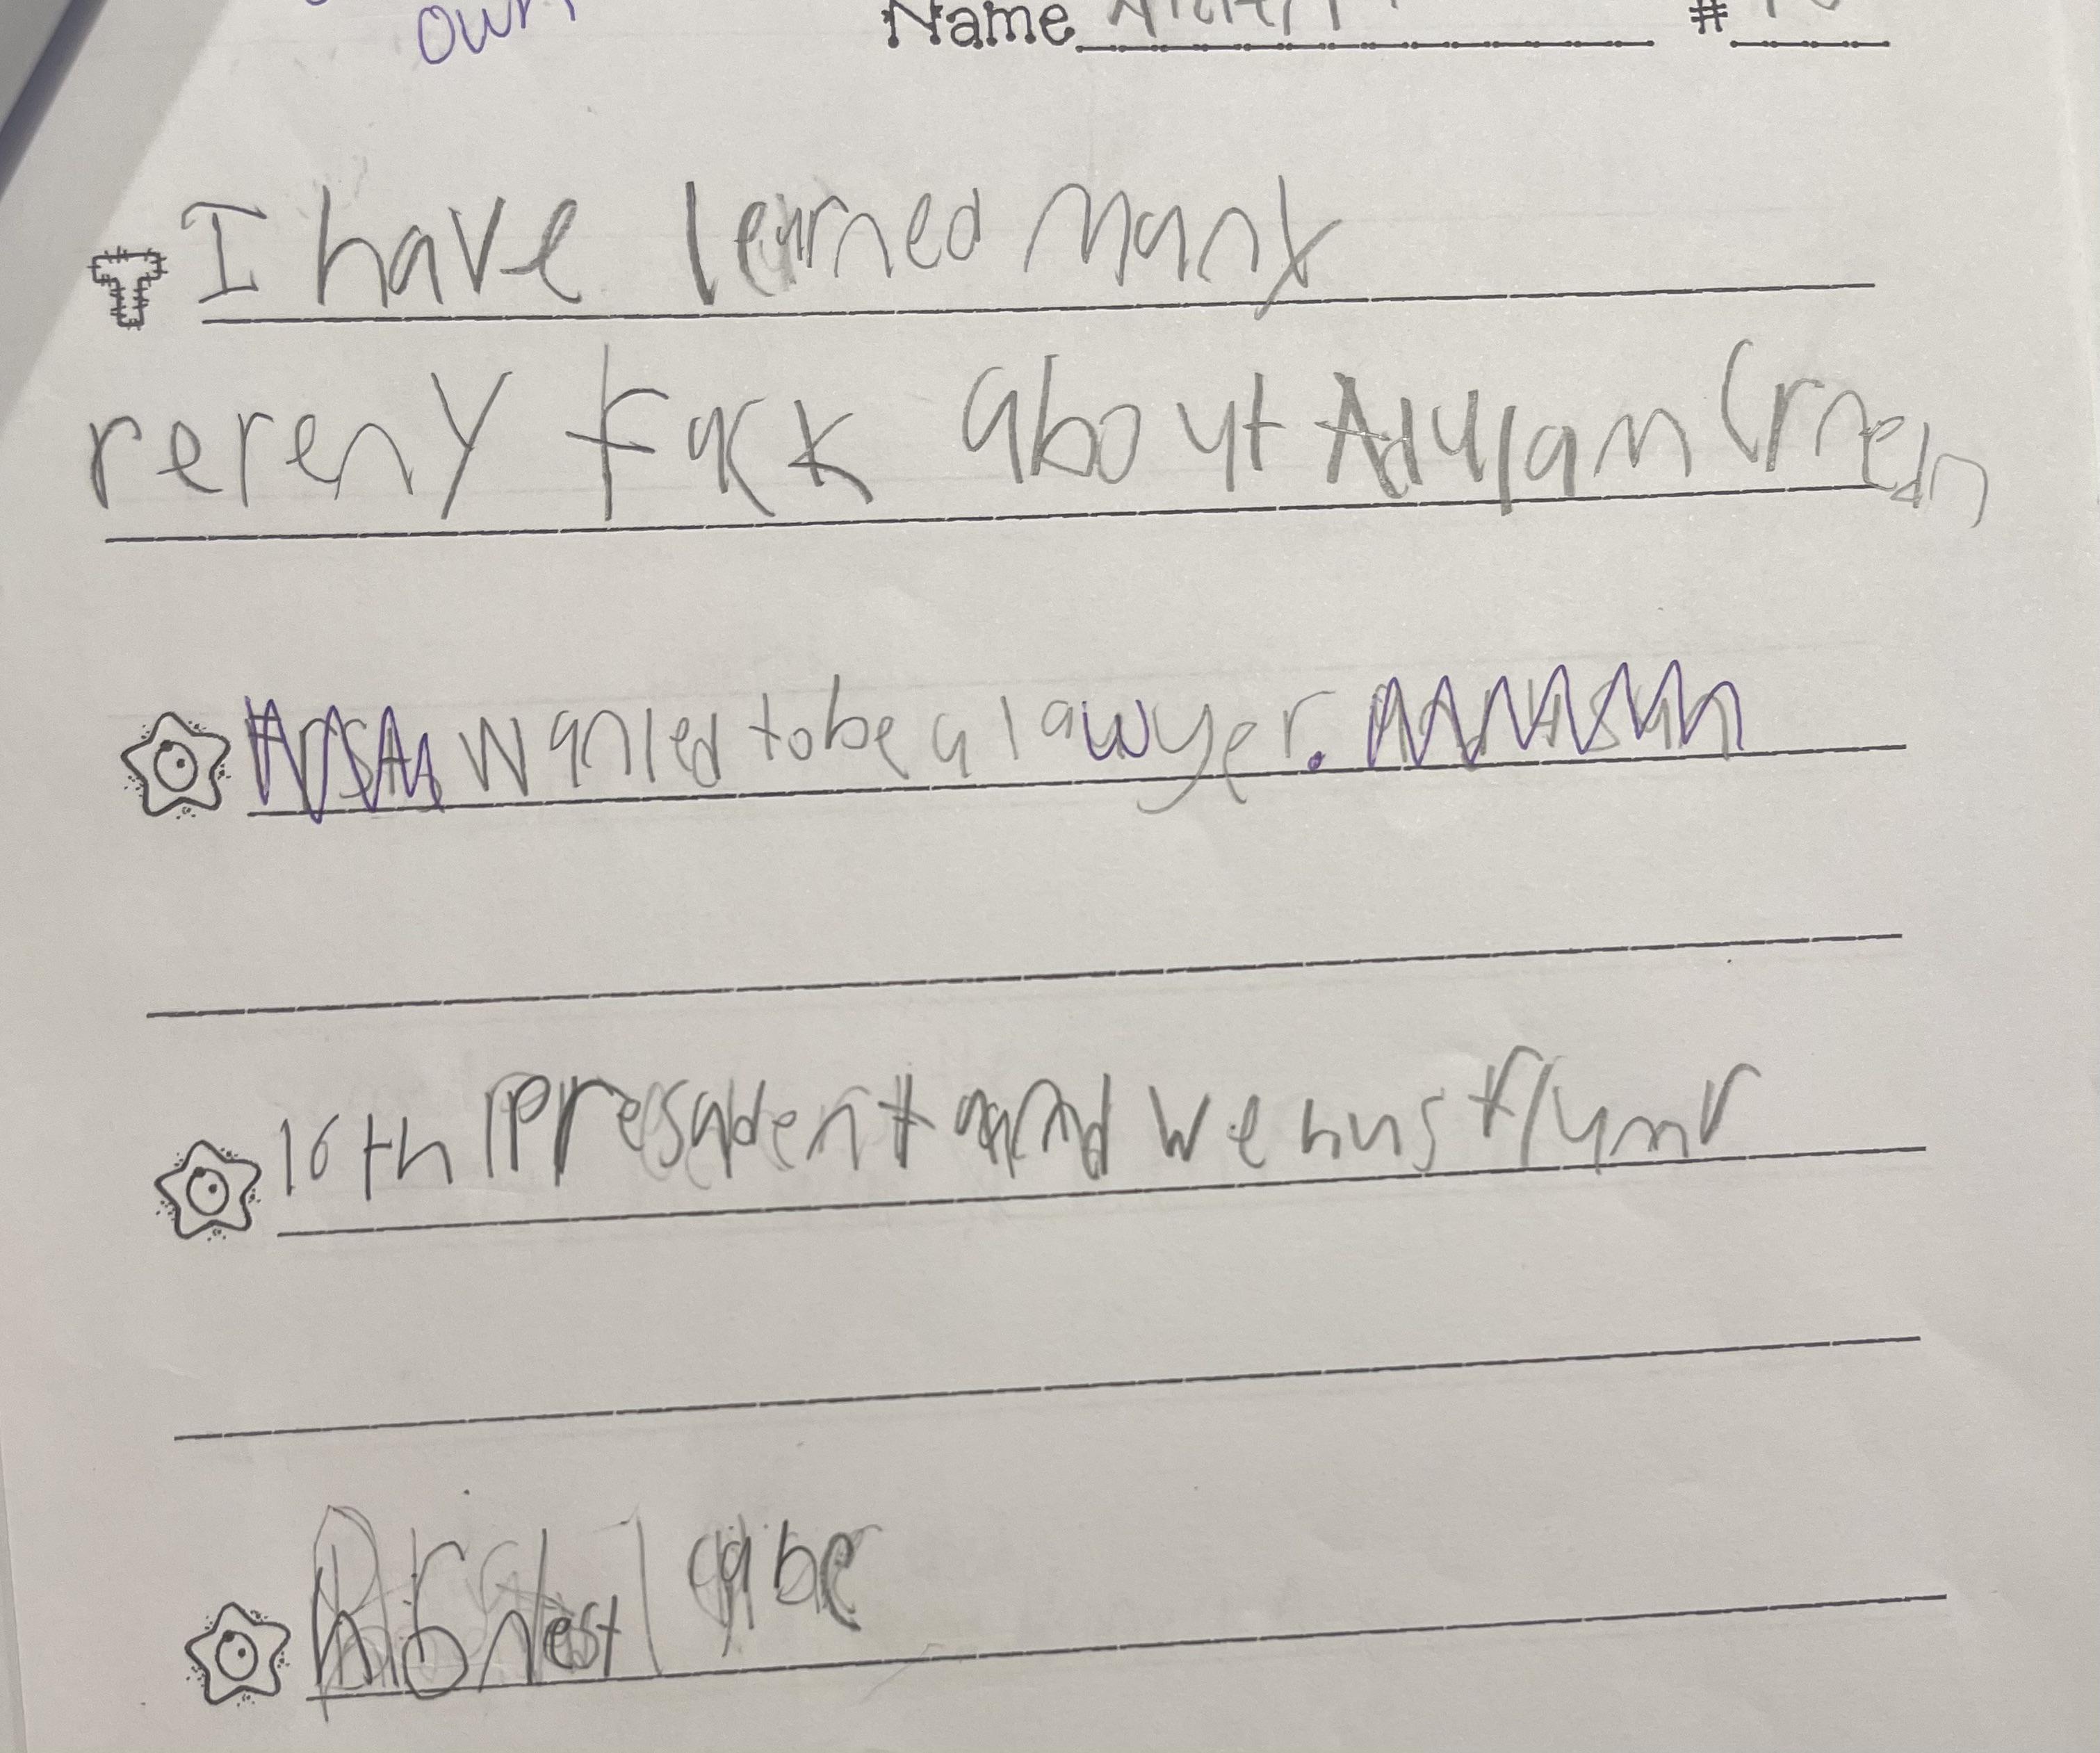 own
Name #
T I have learned many
rereny fack about Adulam Crnedn
wanted to be a lawyer.
16th Presadent and we hus flymr
honest abe